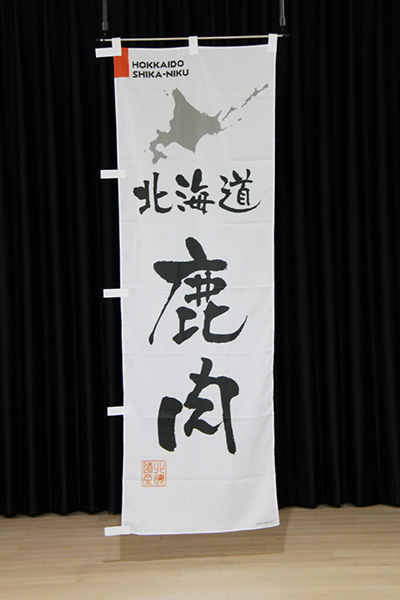 HOKKAIDO
SHIKA-NIKU
北海道
鹿肉
北海
道産